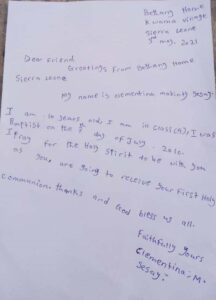 Bethany Home
Kwama Village
Sierra Leone
3rd may, 2021
Dear friend
Greetings From Bethany Home
Sierra Leone
my name is clementina makinty Sesay.
I am 10 years old, I am in class (5), I was
Baptist on the day of July 2010.
I pray for the Holy Spirit to be with you
as you are going to receive your First Holy
communion. thanks and God bless us all.
Faithfully Yours
Clementina. M.
Sesay.